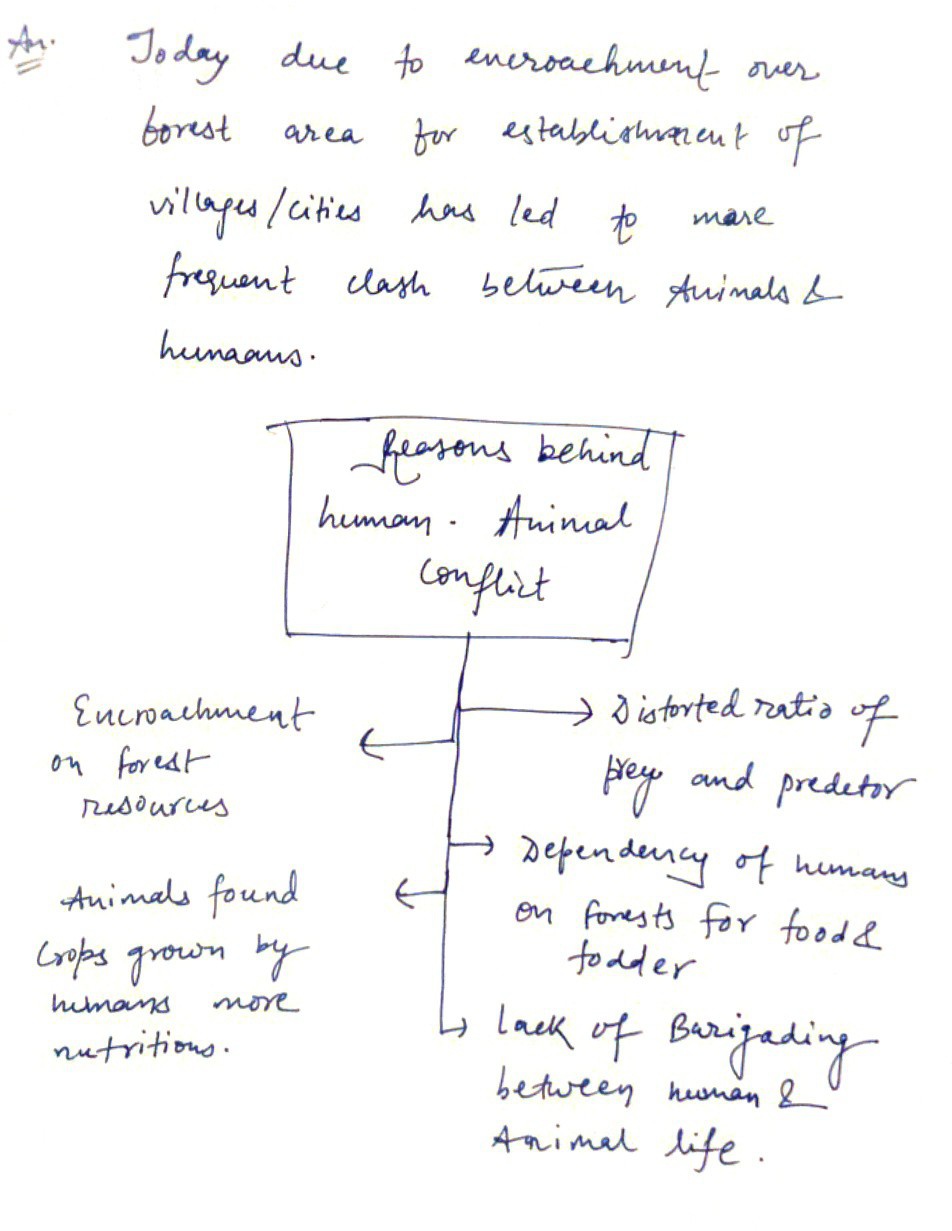 An.
Today due to encroachment over
forest area for establishment of
villages/cities has led to more
frequent clash between Animals &
humans.
Reasons behind
human - Animal
Conflict
Encroachment
on forest
resources
Animals found
Crops grown by
humans more
nutritions.
Distorted ratio of
prey and predetor
Dependency of humans
on forests for food &
fodder
Lack of Barigading
between human &
Animal life.